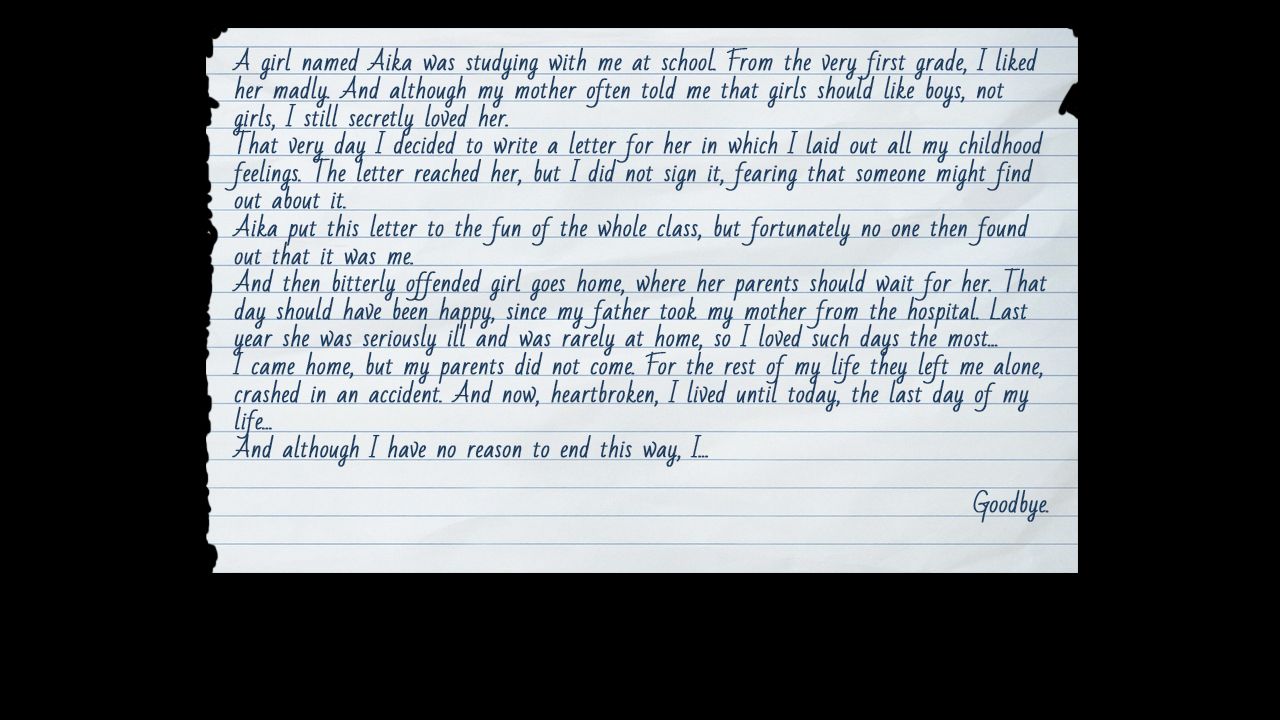 A girl named Aika was studying with me at school. From the very first grade, I liked
her madly. And although my mother often told me that girls should like boys, not
girls, I still secretly loved her.
That very day I decided to write a letter for her in which I laid out all my childhood
feelings. The letter reached her, but I did not sign it, fearing that someone might find
out about it.
Aika put this letter to the fun of the whole class, but fortunately no one then found
out that it was me.
And then bitterly offended girl goes home, where her parents should wait for her. That
day should have been happy, since my father took my mother from the hospital. Last
year she was seriously ill and was rarely at home, so I loved such days the most...
I came home, but my parents did not come. For the rest of my life they left me alone,
crashed in an accident. And now, heartbroken, I lived until today, the last day of my
life...
And although I have no reason to end this way, I...
Goodbye.